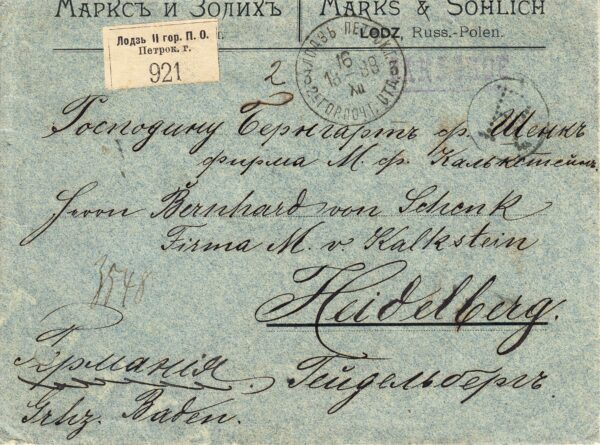 Марксъ и Золихъ
MARKS & SÖHLICH
LODZ, Russ.-Polen.
Лодзь II гор. П. О.
Петрок. г.
921
2
ЛОДЗЬ ПЕТРОК.
16
XII
Господину Бернгартъ ф. Шенкъ
фирма М. ф. Калькстейнъ
Herrn Bernhard von Schenk
Firma M. v. Kalkstein
3548
Heidelberg.
Германія. Гейдельбергъ.
Grhz. Baden.